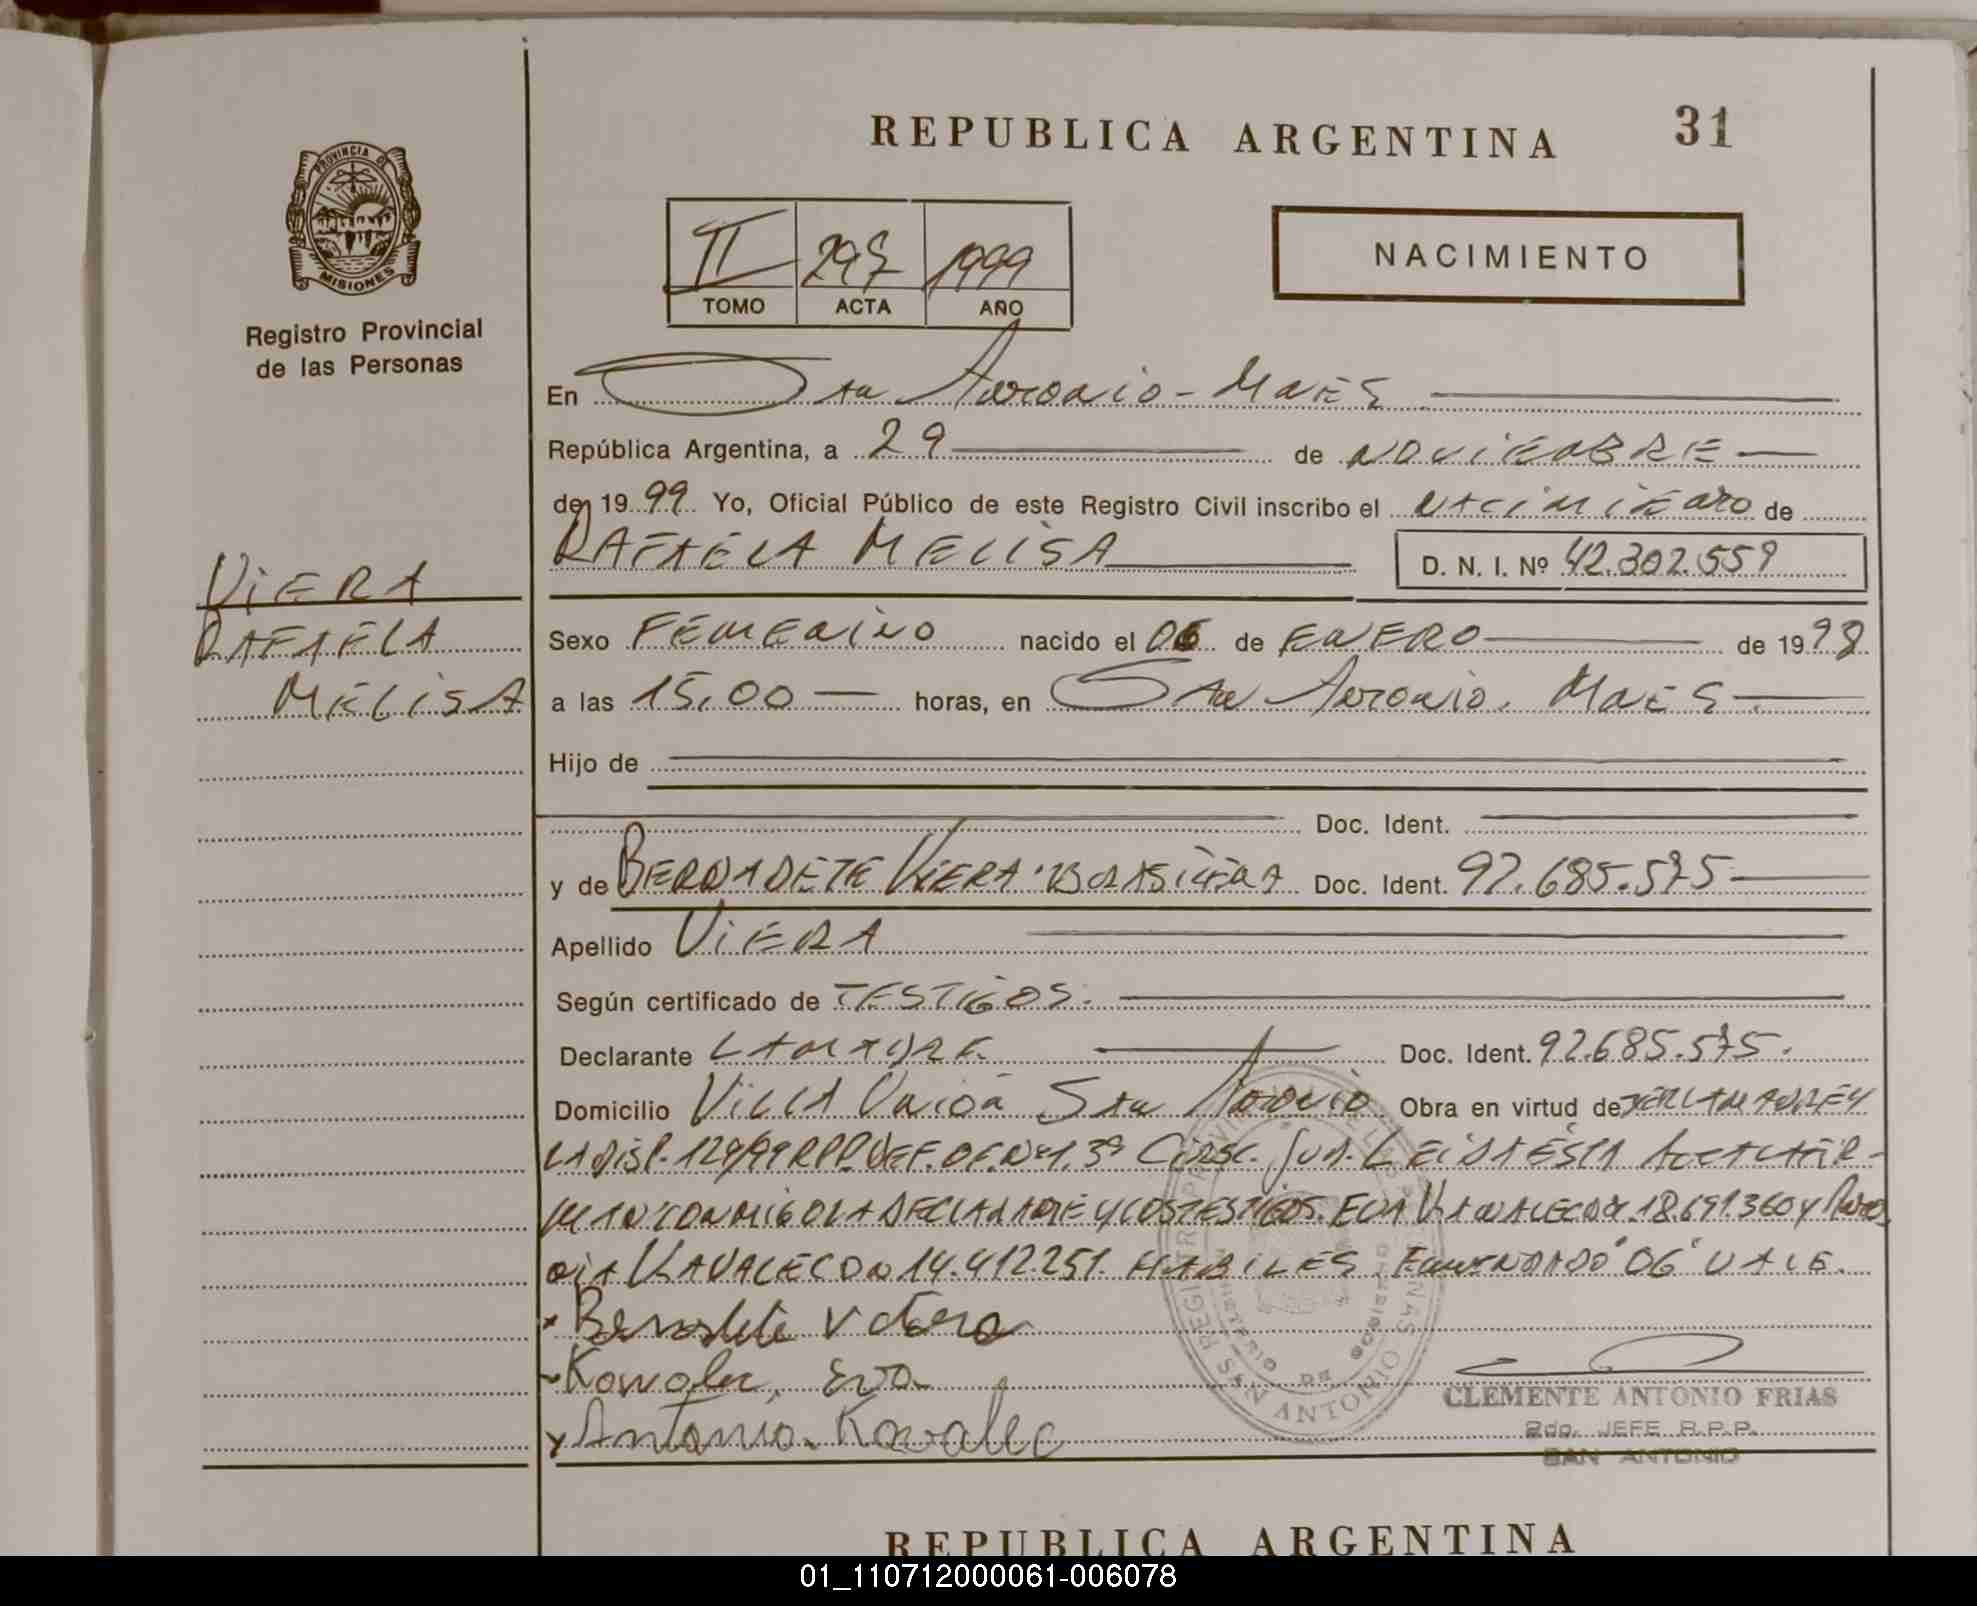 REPUBLICA ARGENTINA
31
PROVINCIA DE
MISIONES
Registro Provincial
de las Personas
II 297 1999
TOMO ACTA AÑO
NACIMIENTO
En San Antonio - Mnes
República Argentina, a 29 de NOVIEMBRE
de 1999 Yo, Oficial Público de este Registro Civil inscribo el NACIMIENTO de
RAFAELA MELISA
D. N. I. Nº 42.302.559
VIERA
RAFAELA
MELISA
Sexo FEMENINO nacido el 06 de ENERO de 1998
a las 15,00 horas, en San Antonio. Mnes
Hijo de
Doc. Ident.
y de BERNADETE VIERA BRASILEÑA Doc. Ident. 92.685.575
Apellido VIERA
Según certificado de TESTIGOS.
Declarante LA MADRE. Doc. Ident. 92.685.575.
Domicilio Villa Unión San Antonio Obra en virtud de
LA DISP. 129/99 RPP. DEF. OF. Nº 1. 3ª Circ. Jud. LEIDA ESTA ACTA LA FIR-
MAN CONMIGO LA DECLARANTE Y LOS TESTIGOS. EVA 18.691.360 y
14.412.251. HABILES ENMENDADO "06" VALE.
Viera
Eva
y Antonio Kovalec
SAN ANTONIO
CLEMENTE ANTONIO FRIAS
2do. JEFE R.P.P.
SAN ANTONIO
REPUBLICA ARGENTINA
01_110712000061-006078